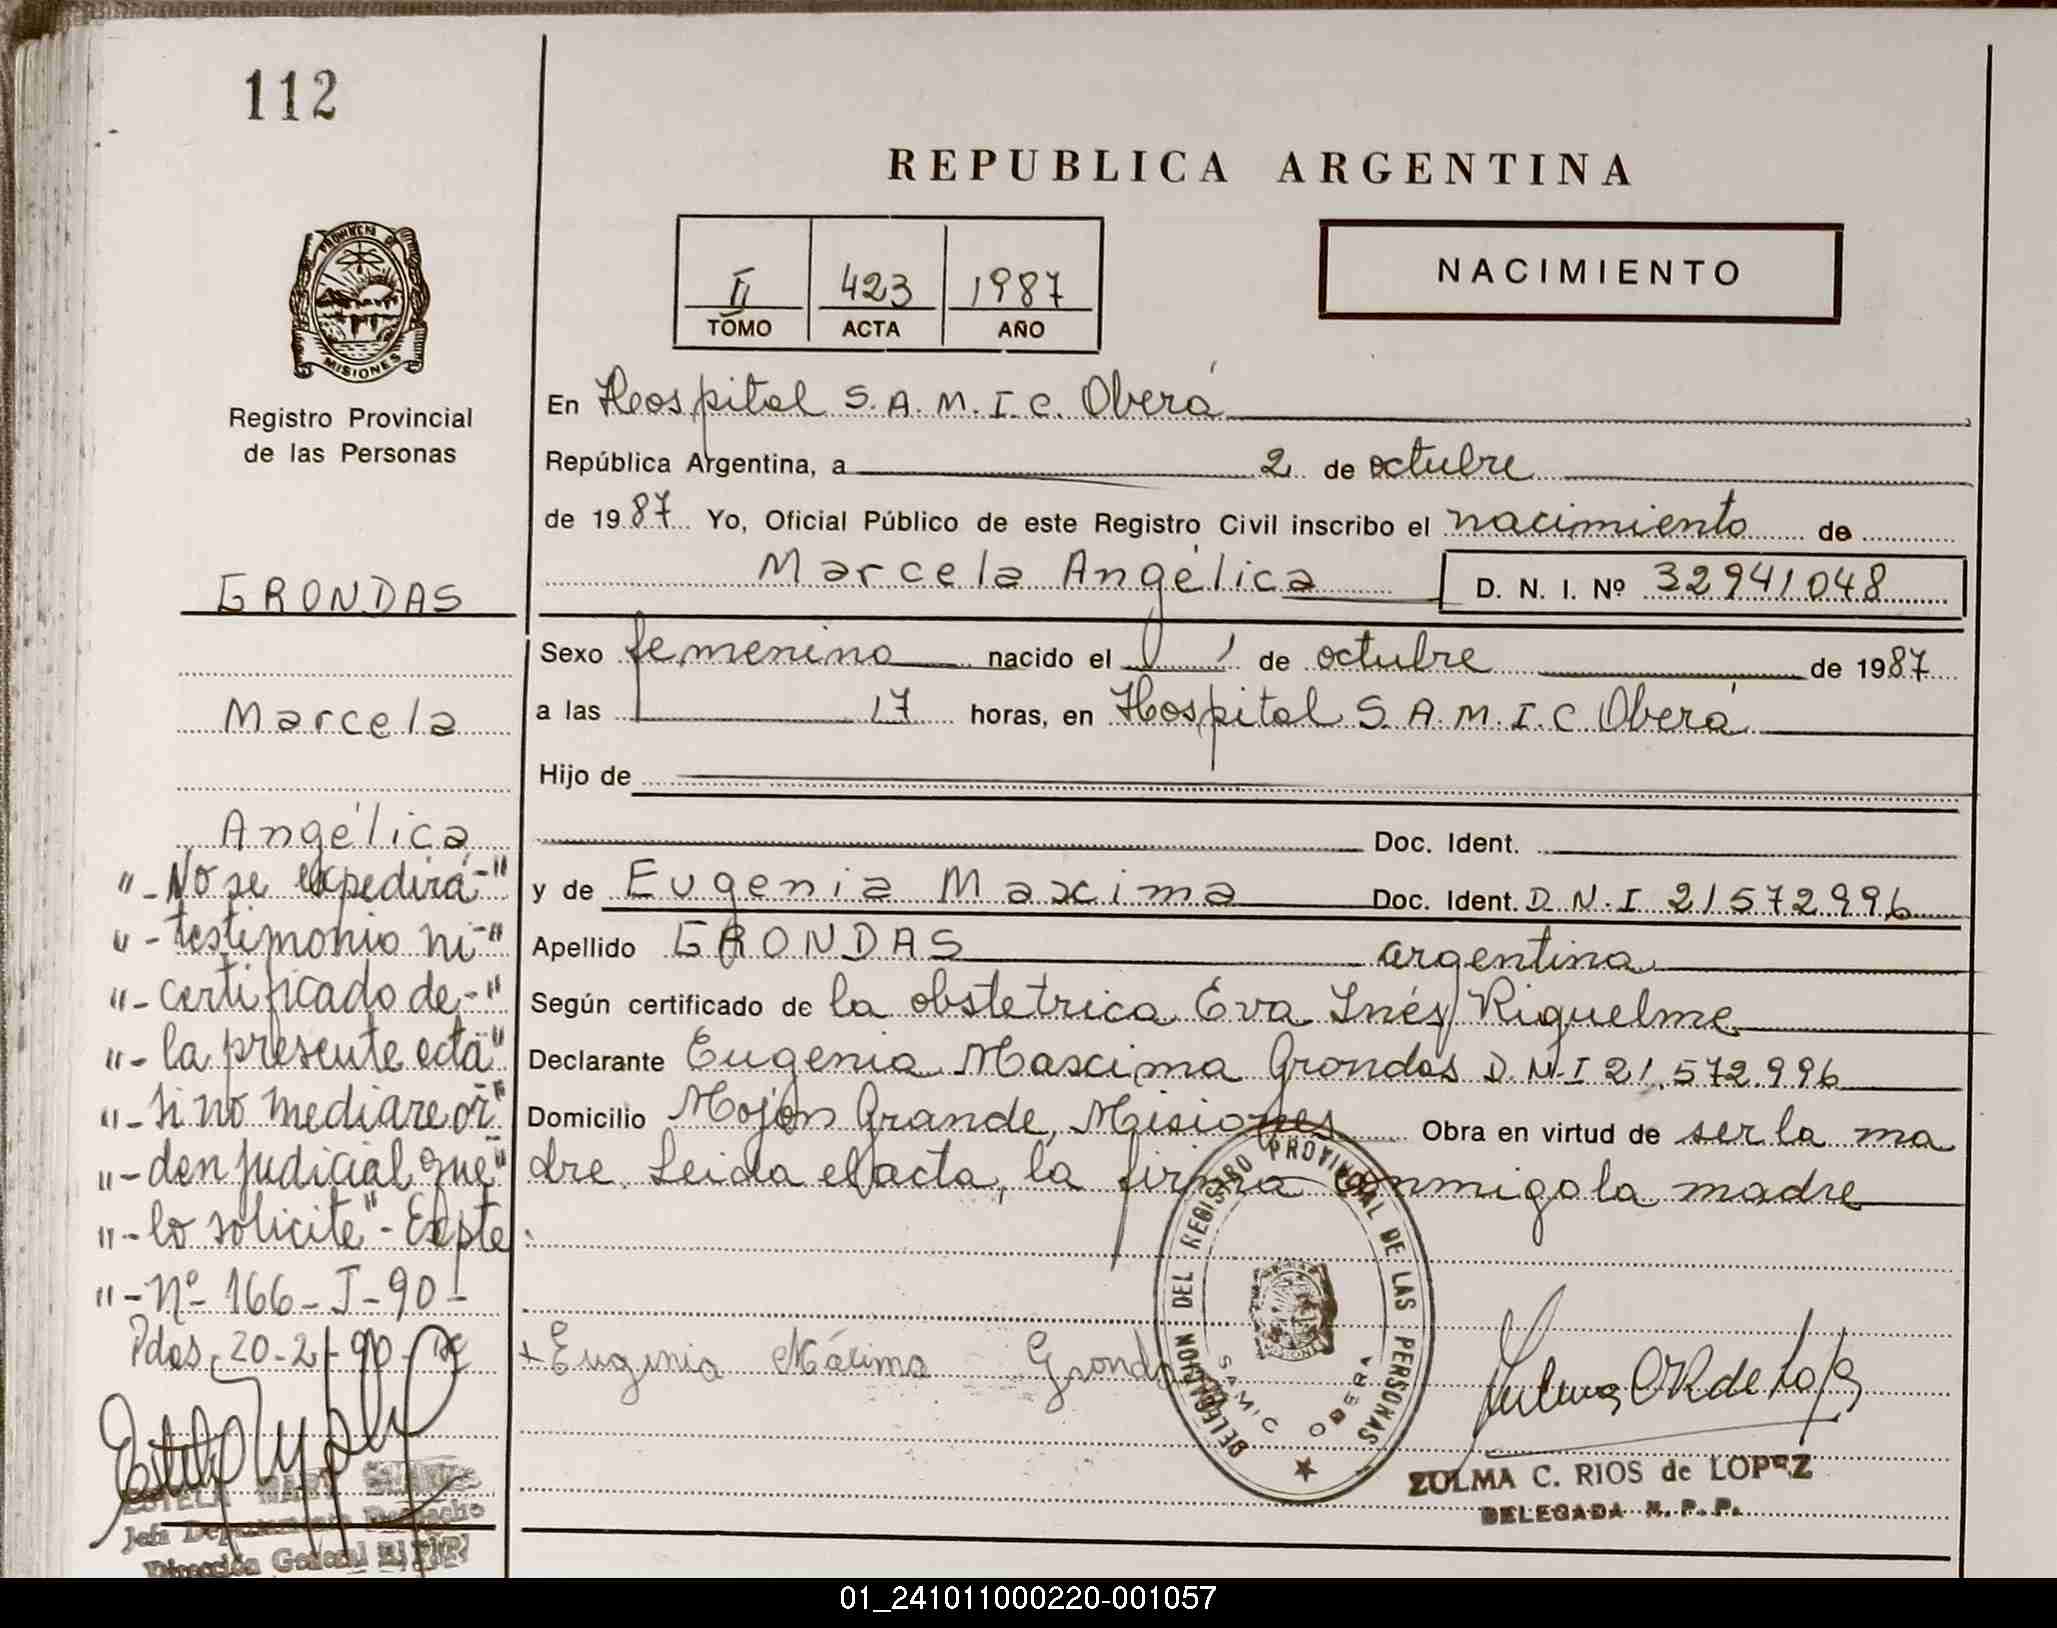 112
REPUBLICA ARGENTINA
PROVINCIA DE
MISIONES
Registro Provincial
de las Personas
II 423 1987
TOMO ACTA AÑO
NACIMIENTO
En Hospital S.A.M.I.C. Oberá
República Argentina, a 2 de octubre
de 1987 Yo, Oficial Público de este Registro Civil inscribo el nacimiento de
Marcela Angélica D. N. I. Nº 32941048
Sexo femenino nacido el 1 de octubre de 1987
a las 17 horas, en Hospital S.A.M.I.C Oberá
Hijo de
Doc. Ident.
y de Eugenia Maxima Doc. Ident. D.N.I 21572996
Apellido GRONDAS argentina
Según certificado de la obstetrica Eva Inés Riquelme
Declarante Eugenia Maxima Grondas D.N.I 21.572.996
Domicilio Mojon Grande, Misiones Obra en virtud de ser la ma
dre. Leida el acta, la firma conmigo la madre
GRONDAS
Marcela
Angélica
"-No se expedirá-"
"-testimonio ni-"
"-certificado de-"
"-la presente acta"
"-si no mediare or"
"-den judicial que"
"-lo solicite"-Expte
"-Nº 166-J-90-
Pdas, 20-2-90-
ESTELA
Jefa Departamento Despacho
Dirección General
+Eugenia Máxima Grondas
DELEGACION DEL REGISTRO PROVINCIAL DE LAS PERSONAS
SAMIC OBERA
Zulma C R de López
ZULMA C. RIOS de LOPEZ
DELEGADA R. P. P.
01_241011000220-001057